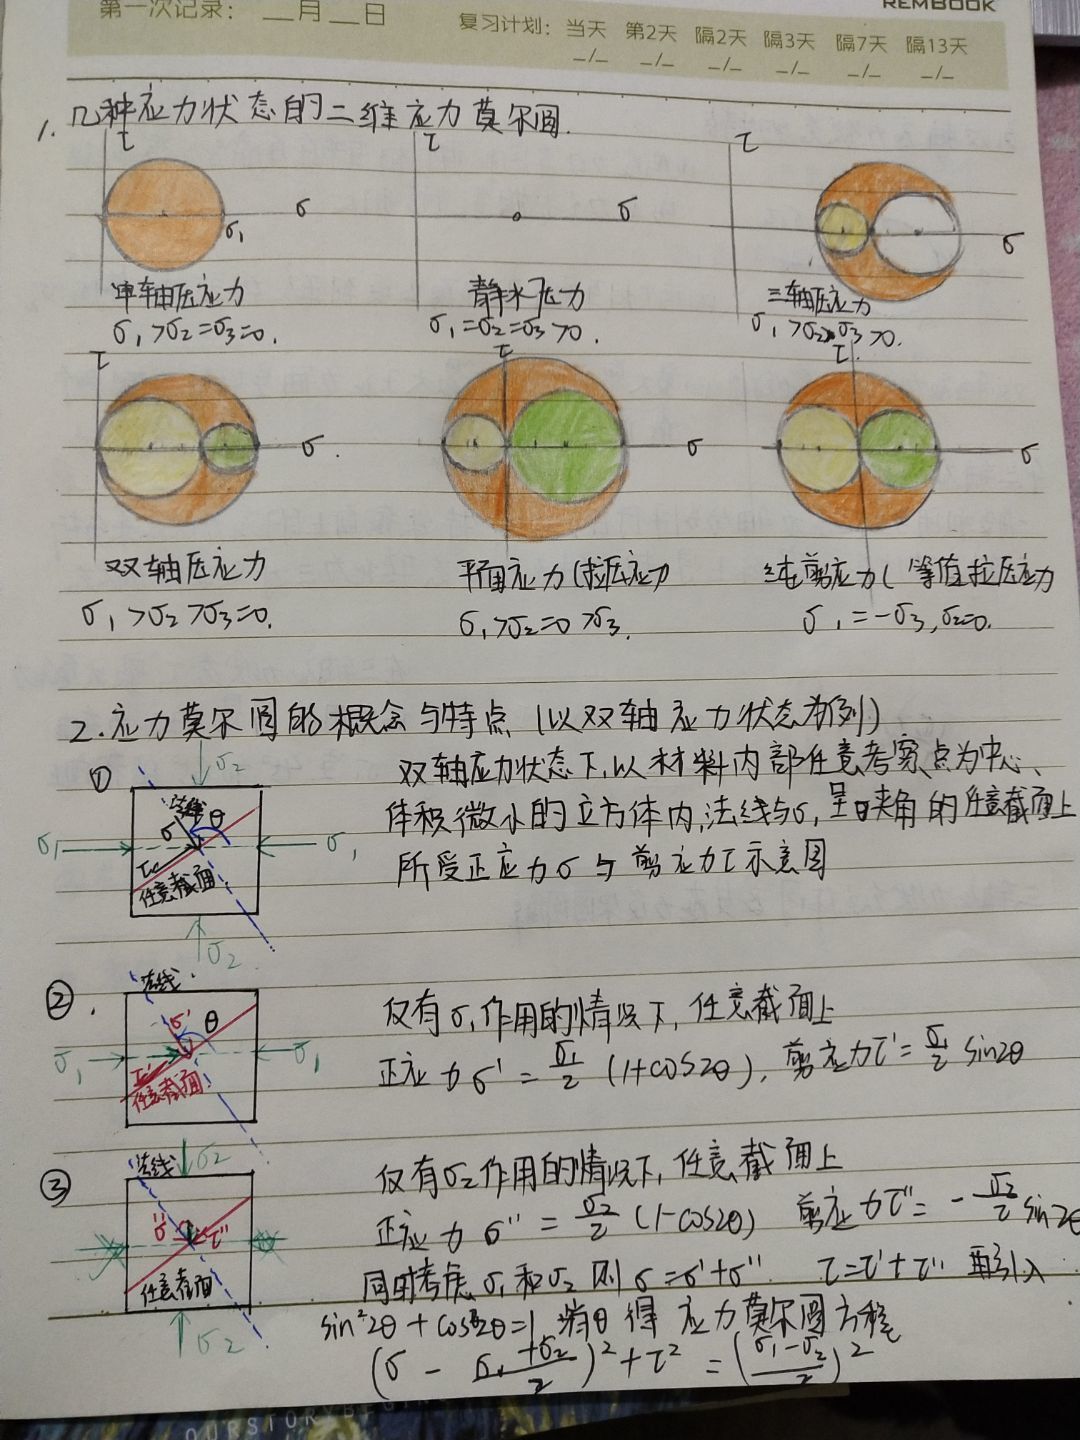 第一次记录: __月__日
REMBOOK
复习计划: 当天 第2天 隔2天 隔3天 隔7天 隔13天
_/_ _/_ _/_ _/_ _/_ _/_
1. 几种应力状态的二维应力莫尔圆.
τ τ τ
σ₁ σ σ σ
单轴压应力 静水压力 三轴压应力
σ₁>σ₂=σ₃=0. σ₁=σ₂=σ₃>0. σ₁>σ₂>σ₃>0.
τ τ τ
σ. σ σ
双轴压应力 平面应力(拉压应力) 纯剪应力(等值拉压应力
σ₁>σ₂>σ₃=0. σ₁>σ₂=0>σ₃. σ₁=-σ₃,σ₂=0.
2.应力莫尔圆的概念与特点(以双轴应力状态为例)
① σ₂
法线 θ
σ
σ₁ σ₁
τ
任意截面
σ₂
双轴应力状态下,以材料内部任意考察点为中心、
体积微小的立方体内,法线与σ₁呈θ夹角的任意截面上
所受正应力σ与剪应力τ示意图
②. 法线
σ' θ
σ₁ σ₁
τ'
任意截面
仅有σ₁作用的情况下,任意截面上
正应力σ'=σ₁/2(1+cos2θ),剪应力τ'=σ₁/2 sin2θ
③ 法线 σ₂
σ'' τ''
任意截面
σ₂
仅有σ₂作用的情况下,任意截面上
正应力σ''=σ₂/2(1-cos2θ) 剪应力τ''=-σ₂/2 sin2θ
同时考虑σ₁和σ₂则σ=σ'+σ'' τ=τ'+τ'' 再引入
sin²2θ+cos²2θ=1,消θ得 应力莫尔圆方程
(σ-(σ₁+σ₂)/2)²+τ²=((σ₁-σ₂)/2)²